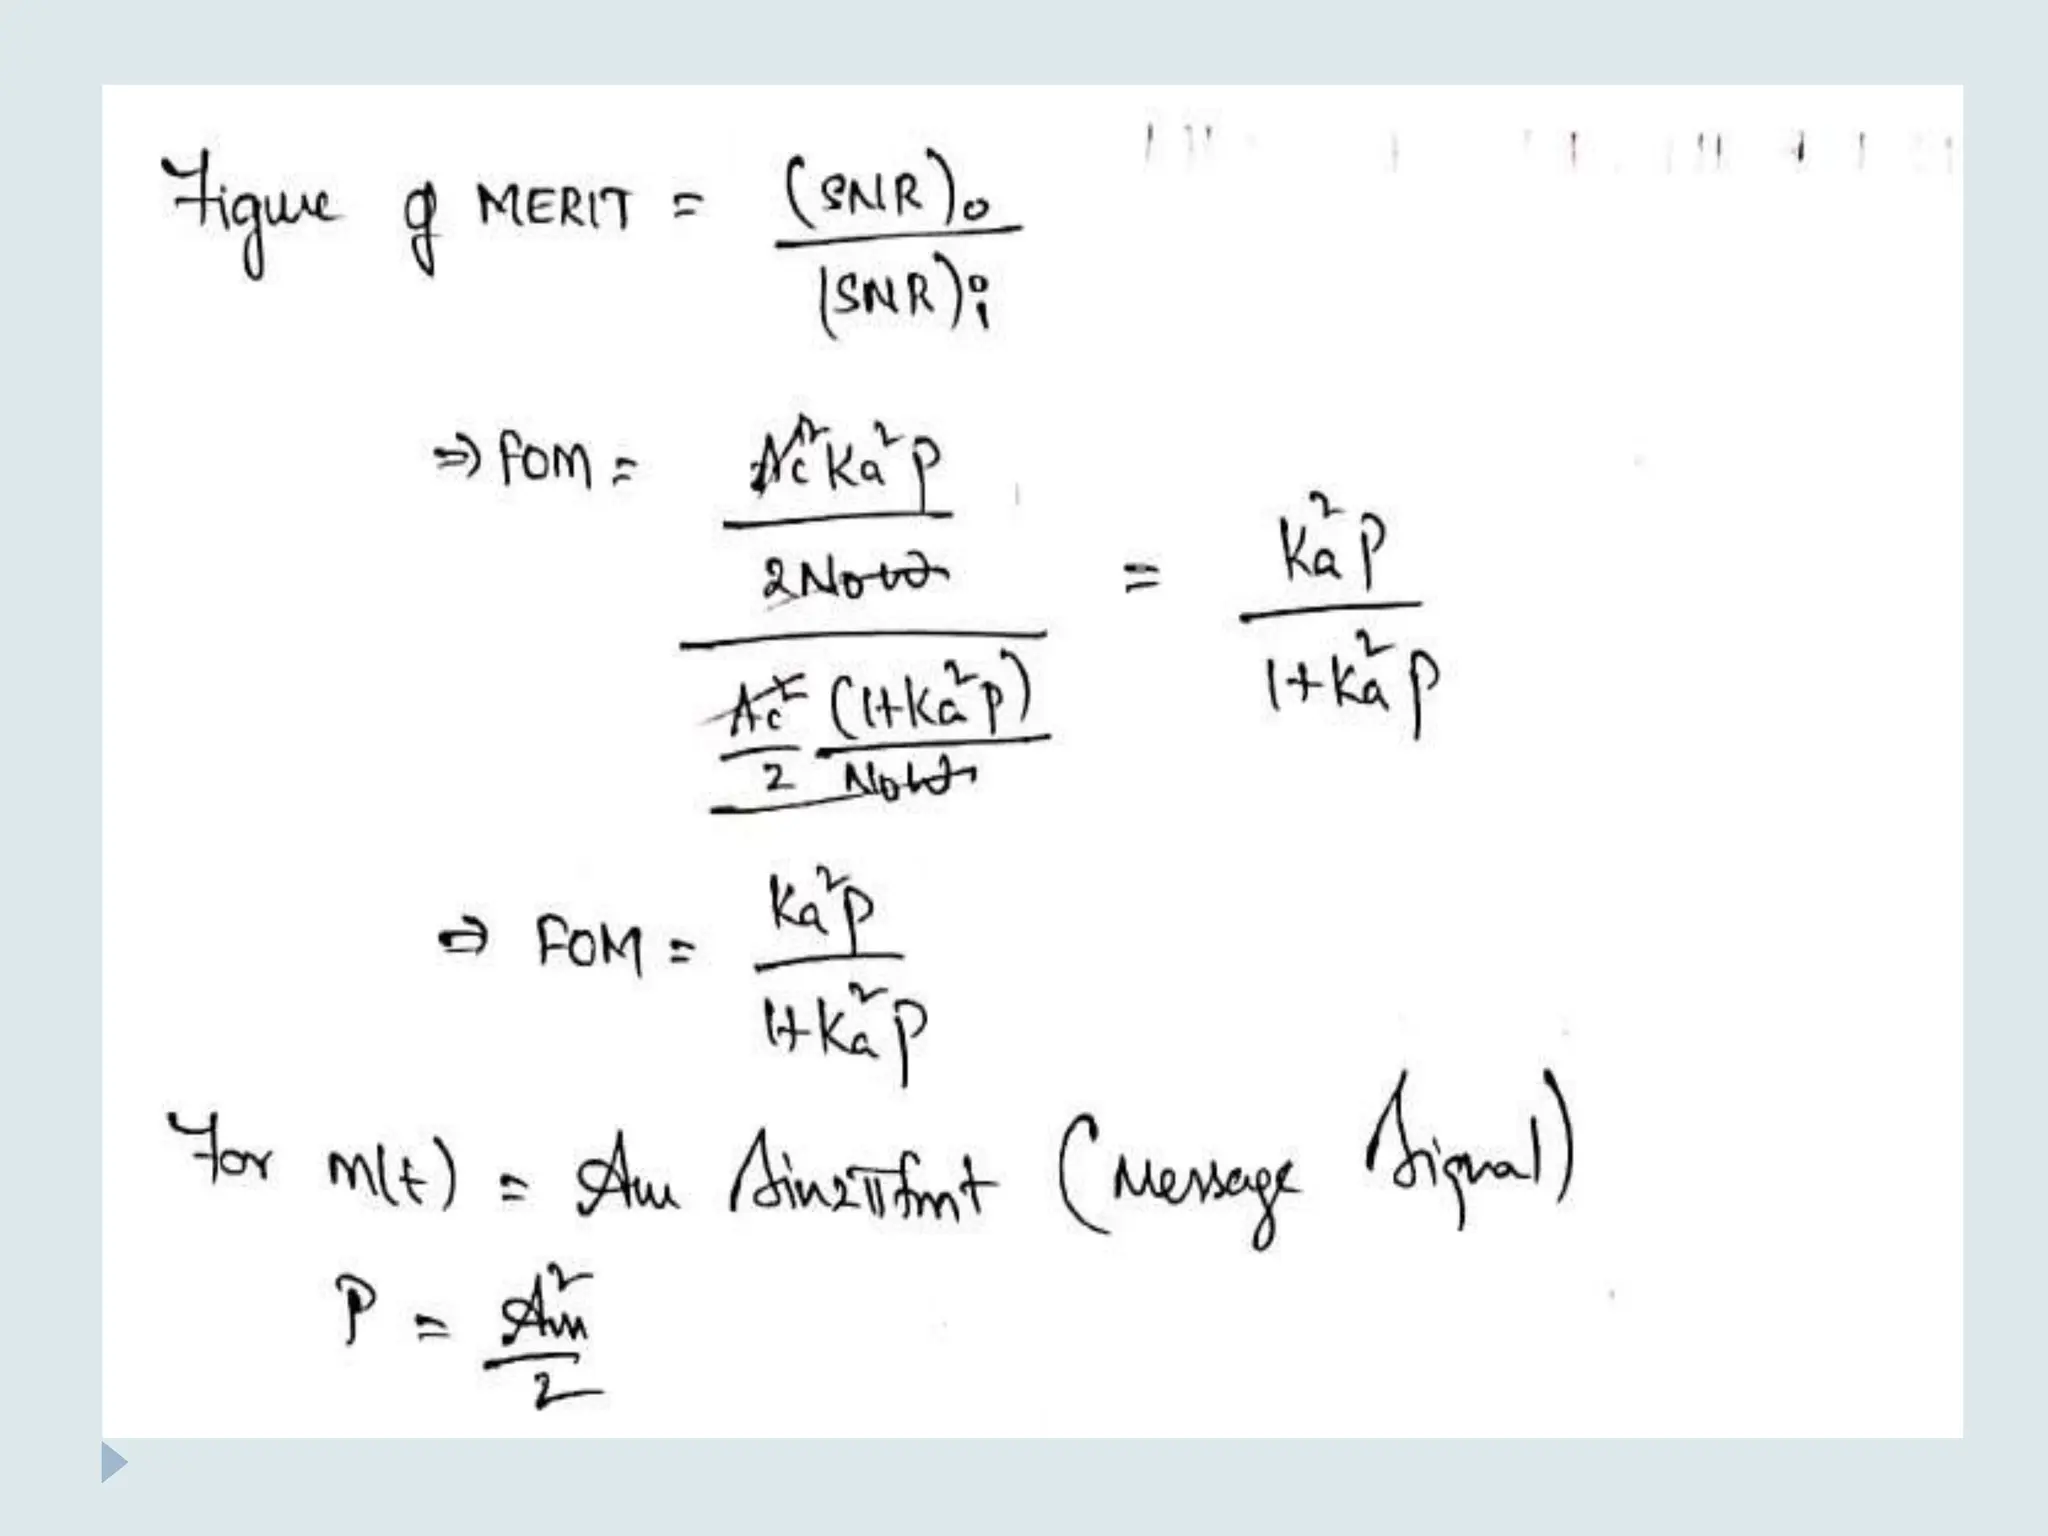 Figure of MERIT = (SNR)o / (SNR)i
⇒ FOM = (Ac²Ka²P / 2Now) / (Ac²/2 (1+Ka²P) / Now) = Ka²P / 1+Ka²P
⇒ FOM = Ka²P / 1+Ka²P
For m(t) = Am Sin2πfmt (Message Signal)
P = Am² / 2